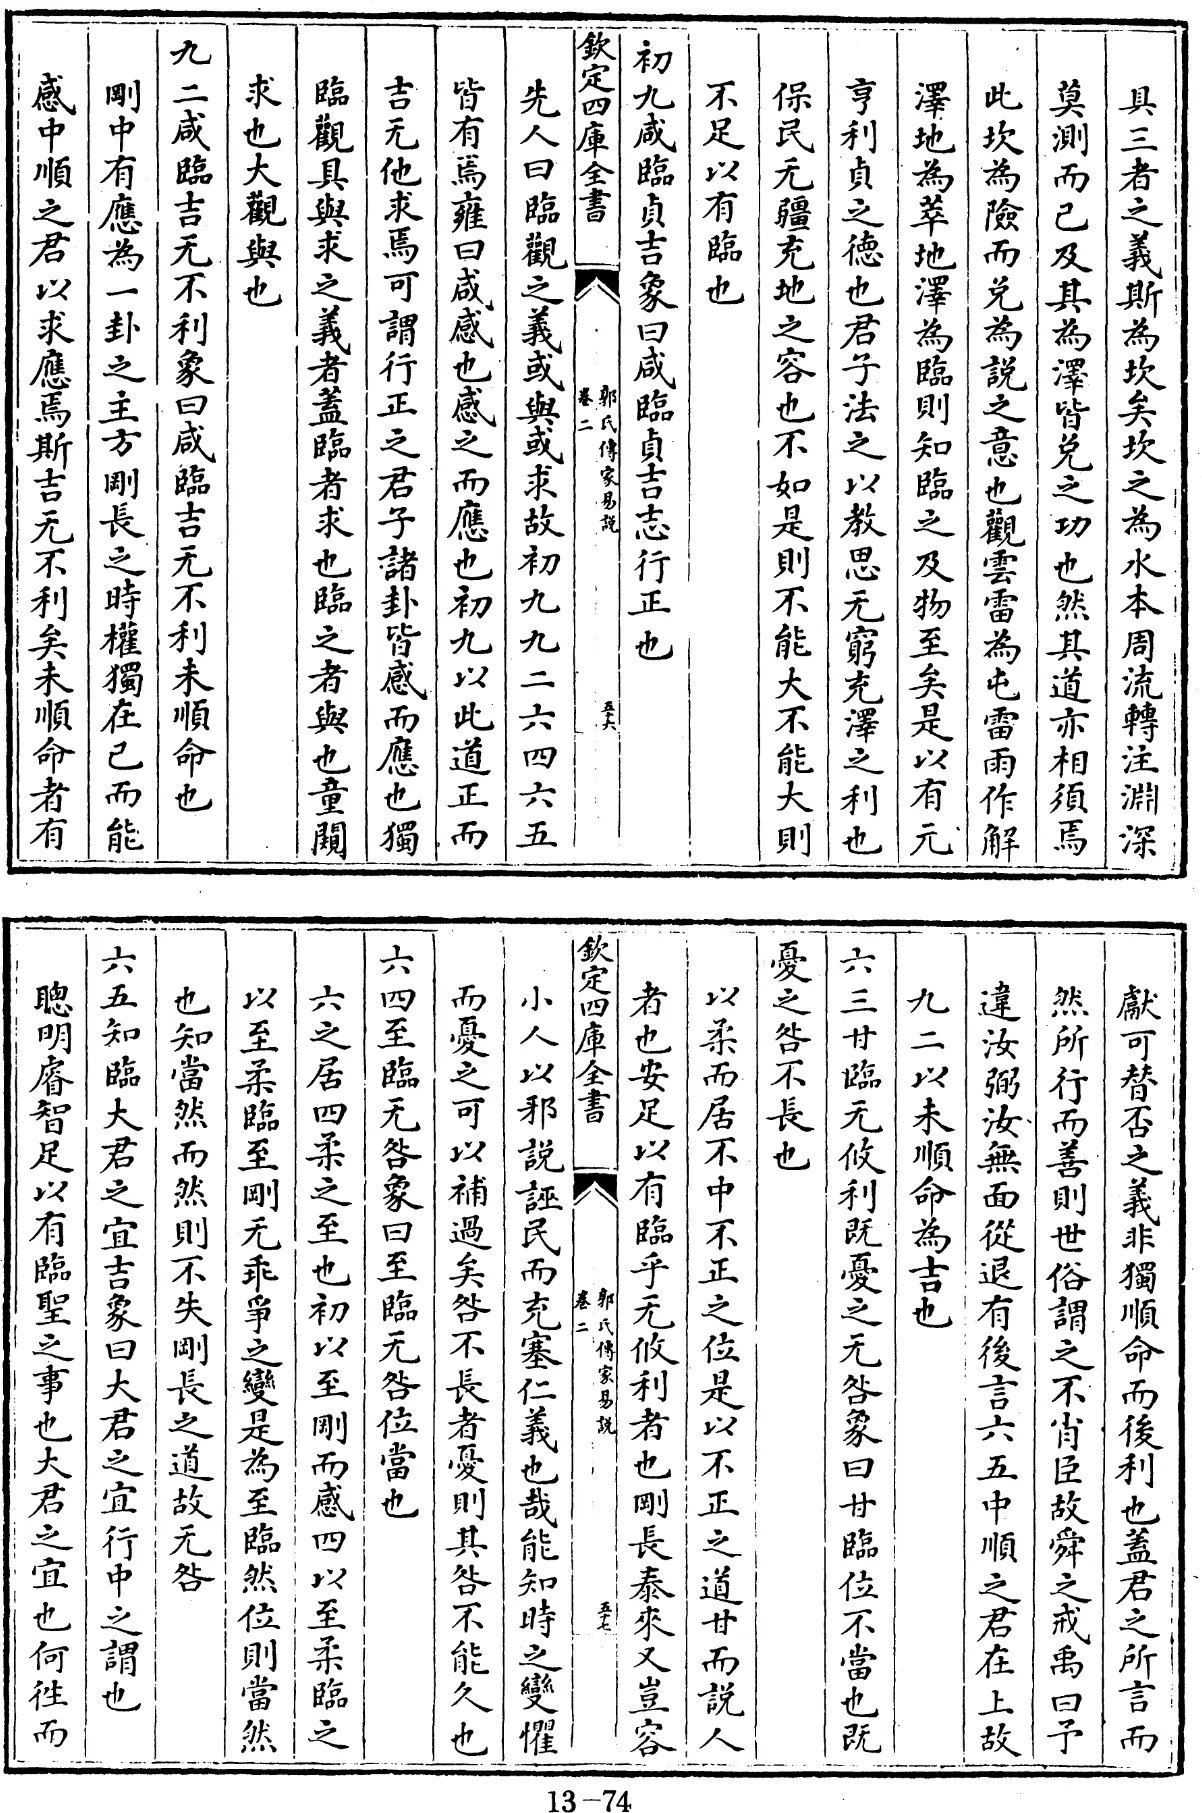 具三者之義斯為坎矣坎之為水本周流轉注淵深
莫測而已及其為澤皆兌之功也然其道亦相須焉
此坎為險而兌為說之意也觀雲雷為屯雷雨作解
澤地為萃地澤為臨則知臨之及物至矣是以有元
亨利貞之德也君子法之以教思无窮充澤之利也
保民无疆充地之容也不如是則不能大不能大則
不足以有臨也
初九咸臨貞吉象曰咸臨貞吉志行正也
欽定四庫全書
郭氏傳家易說
卷二
五十六
先人曰臨觀之義或與或求故初九九二六四六五
皆有焉雍曰咸感也感之而應也初九以此道正而
吉无他求焉可謂行正之君子諸卦皆感而應也獨
臨觀具與求之義者蓋臨者求也臨之者與也童闚
求也大觀與也
九二咸臨吉无不利象曰咸臨吉无不利未順命也
剛中有應為一卦之主方剛長之時權獨在己而能
感中順之君以求應焉斯吉无不利矣未順命者有
獻可替否之義非獨順命而後利也蓋君之所言而
然所行而善則世俗謂之不肖臣故舜之戒禹曰予
違汝弼汝無面從退有後言六五中順之君在上故
九二以未順命為吉也
六三甘臨无攸利既憂之无咎象曰甘臨位不當也既
憂之咎不長也
以柔而居不中不正之位是以不正之道甘而說人
者也安足以有臨乎无攸利者也剛長泰來又豈容
欽定四庫全書
郭氏傳家易說
卷二
五十七
小人以邪說誣民而充塞仁義也哉能知時之變懼
而憂之可以補過矣咎不長者憂則其咎不能久也
六四至臨无咎象曰至臨无咎位當也
六之居四柔之至也初以至剛而感四以至柔臨之
以至柔臨至剛无乖爭之變是為至臨然位則當然
也知當然而然則不失剛長之道故无咎
六五知臨大君之宜吉象曰大君之宜行中之謂也
聰明睿智足以有臨聖之事也大君之宜也何往而
13-74